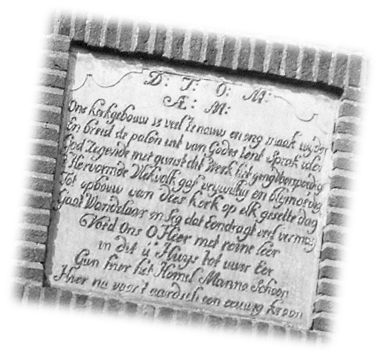 D: T: O: M:
Æ: M:
Ons kerkgebouw is veel te nauw en eng maak wijder
En breid de palen uit van Godes tent Sprak ieder
God Zegende met gunst dit Werk
't Hervormde Dietvolk gaf vrijwillig en blijmoedig
Tot opbouw van dees kerk op elk gesette dag
Gaat Wandelaar en Seg dat Eendragt veel vermag
Voed Ons O Heer met reine leer
in dit u Huys tot uwer Eer
Gun hier het Hemel Manna Schoon
Hier na voor't aardsch een eeuwig kroon